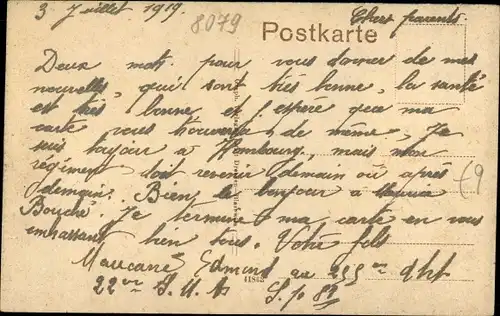 3 Juillet 1919.
8079
Chers parents.
Postkarte
Deux mots pour vous donner de mes
nouvelles, qui sont très bonne, la santé
est très bonne et j'espere que ma
carte vous trouvera de même, Je
suis toujour à Hombourg, mais mon
régiment doit revenir demain où après
demain. Bien le bonjour à
Bouché. Je termine ma carte en vous
embrassant bien tous. Votre fils
Edmond au 255 me
22 me S.p 85
11862